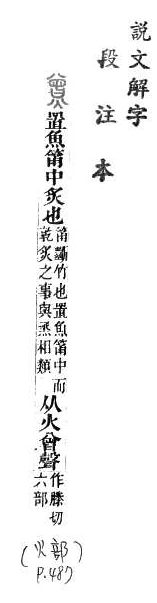 說文解字
段注本
置魚筩中炙也
筩斷竹也置魚筩中而
乾炙之事與烝相類
从火曾聲
作滕切
六部
(火部)
P.487